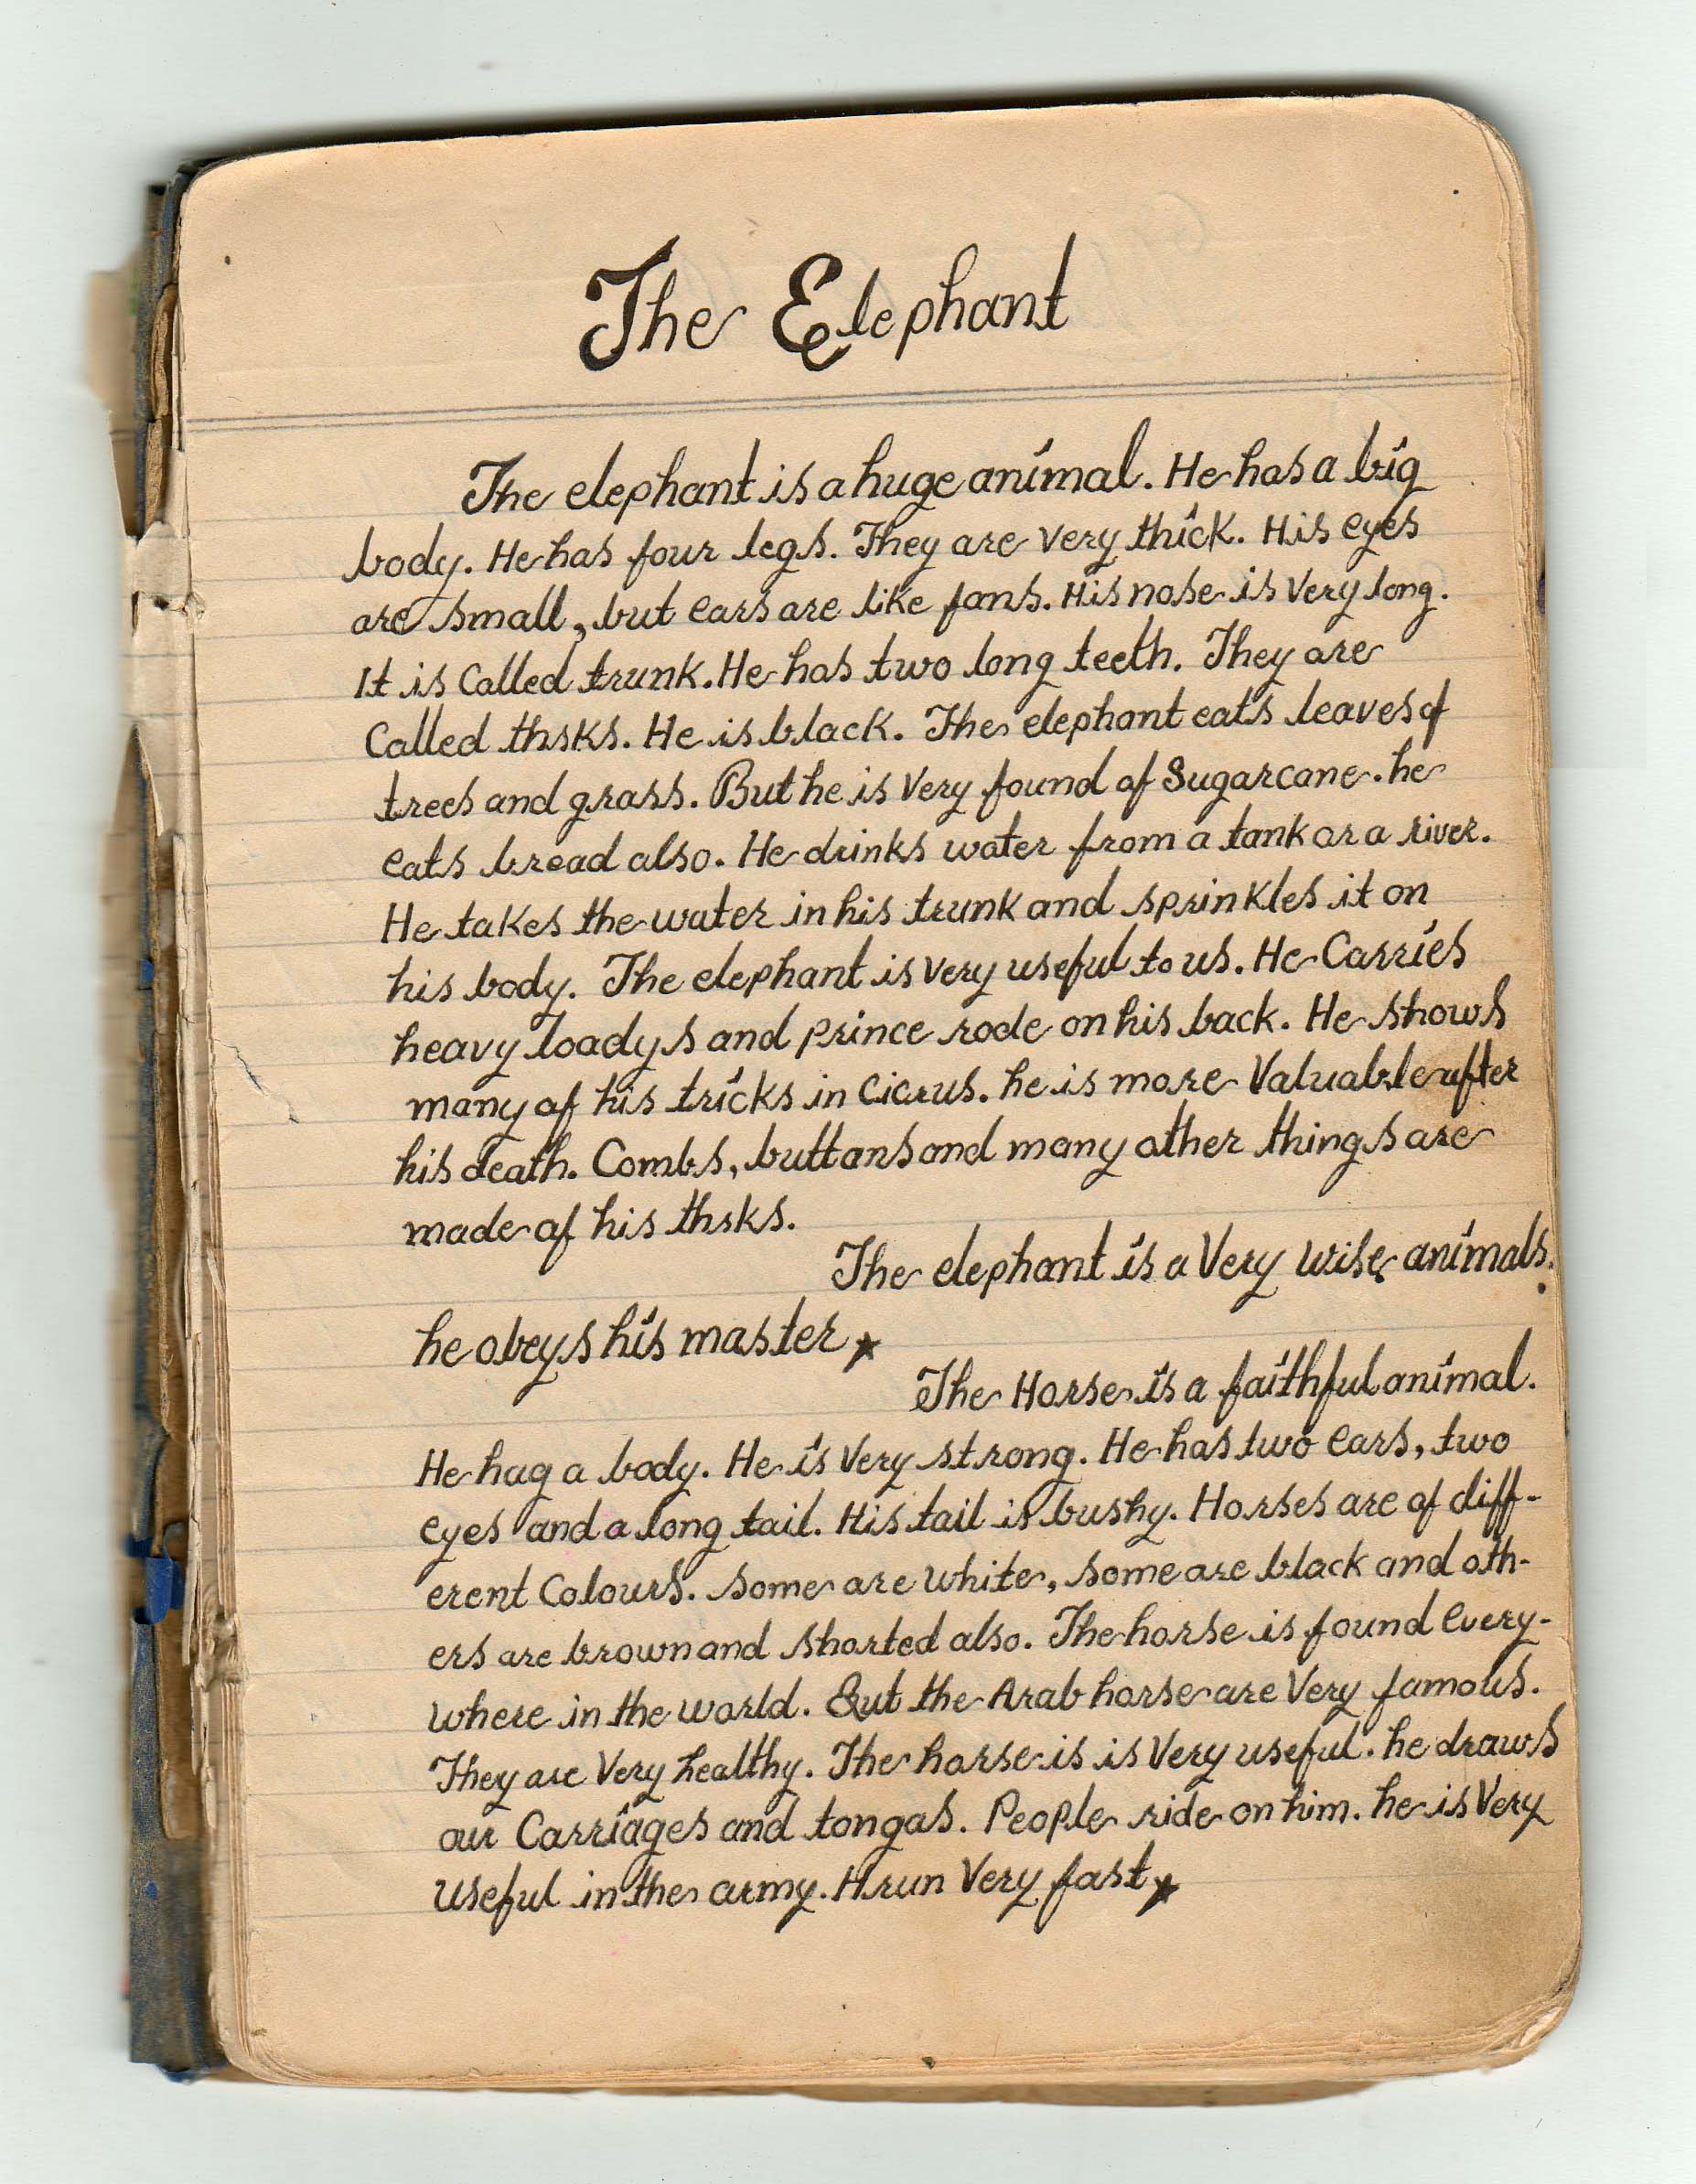 The Elephant
The elephant is a huge animal. He has a big
body. He has four legs. They are very thick. His eyes
are small, but ears are like fans. His nose is very long.
It is Called trunk. He has two long teeth. They are
Called thsks. He is black. The elephant eats leaves of
trees and grass. But he is Very found of Sugarcane. he
eats bread also. He drinks water from a tank or a river.
He takes the water in his trunk and sprinkles it on
his body. The elephant is very useful to us. He Carries
heavy loadys and prince rode on his back. He shows
many of his tricks in Cicrus. he is more Valuable after
his death. Combs, buttons and many other things are
made of his thsks.
The elephant is a Very wise animals.
he obeys his master
The Horse is a faithful animal.
He hag a body. He is Very strong. He has two ears, two
eyes and a long tail. His tail is bushy. Horses are of diff-
erent Colours. Some are white, some are black and oth-
ers are brown and shorted also. The horse is found every-
where in the world. But the Arab horse are Very famous.
They are Very healthy. The horse is is Very useful. he draws
our Carriages and tongas. People ride on him. he is Very
useful in the army. H run Very fast